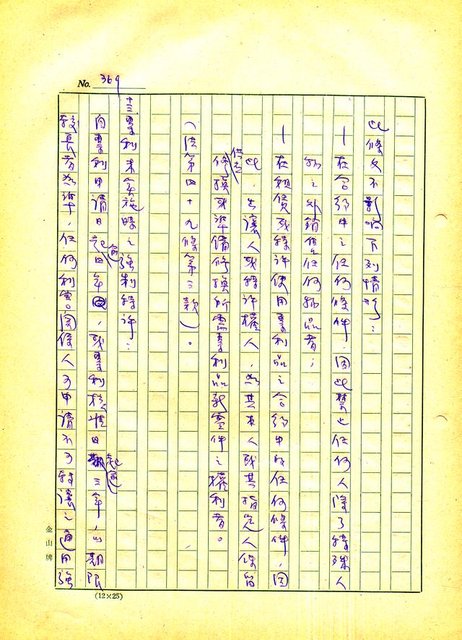 No. 369
此條文不影响下列情形：
—在合約中之任何條件，因此禁止任何人除了特殊人
物之外銷售任何物品者；
—在租賃或特許使用專利品之合約中的任何條件，因
此，出讓人或特許權人，為其本人或其指定人保留
供應修換或準備修換所需專利品或零件之權利者。
（法第四十九條第三款）。
十三專利未實施時之強制特許：
自專利申請日起四年，或專利核准日起三年，以期限
較長者為準，任何利害關係人可申請不可轉讓之適用強
金山牌
(12×25)